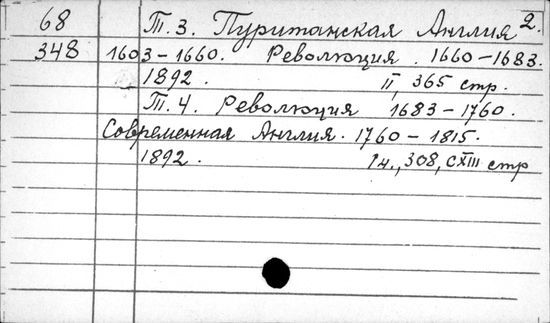 68 Т. 3. Пуританская Англия 2.
348 1603-1660. Революция. 1660-1683.
1892. II, 365 стр.
Т. 4. Революция 1683-1760.
Современная Англия. 1760-1815.
1892. 308, CXIII стр